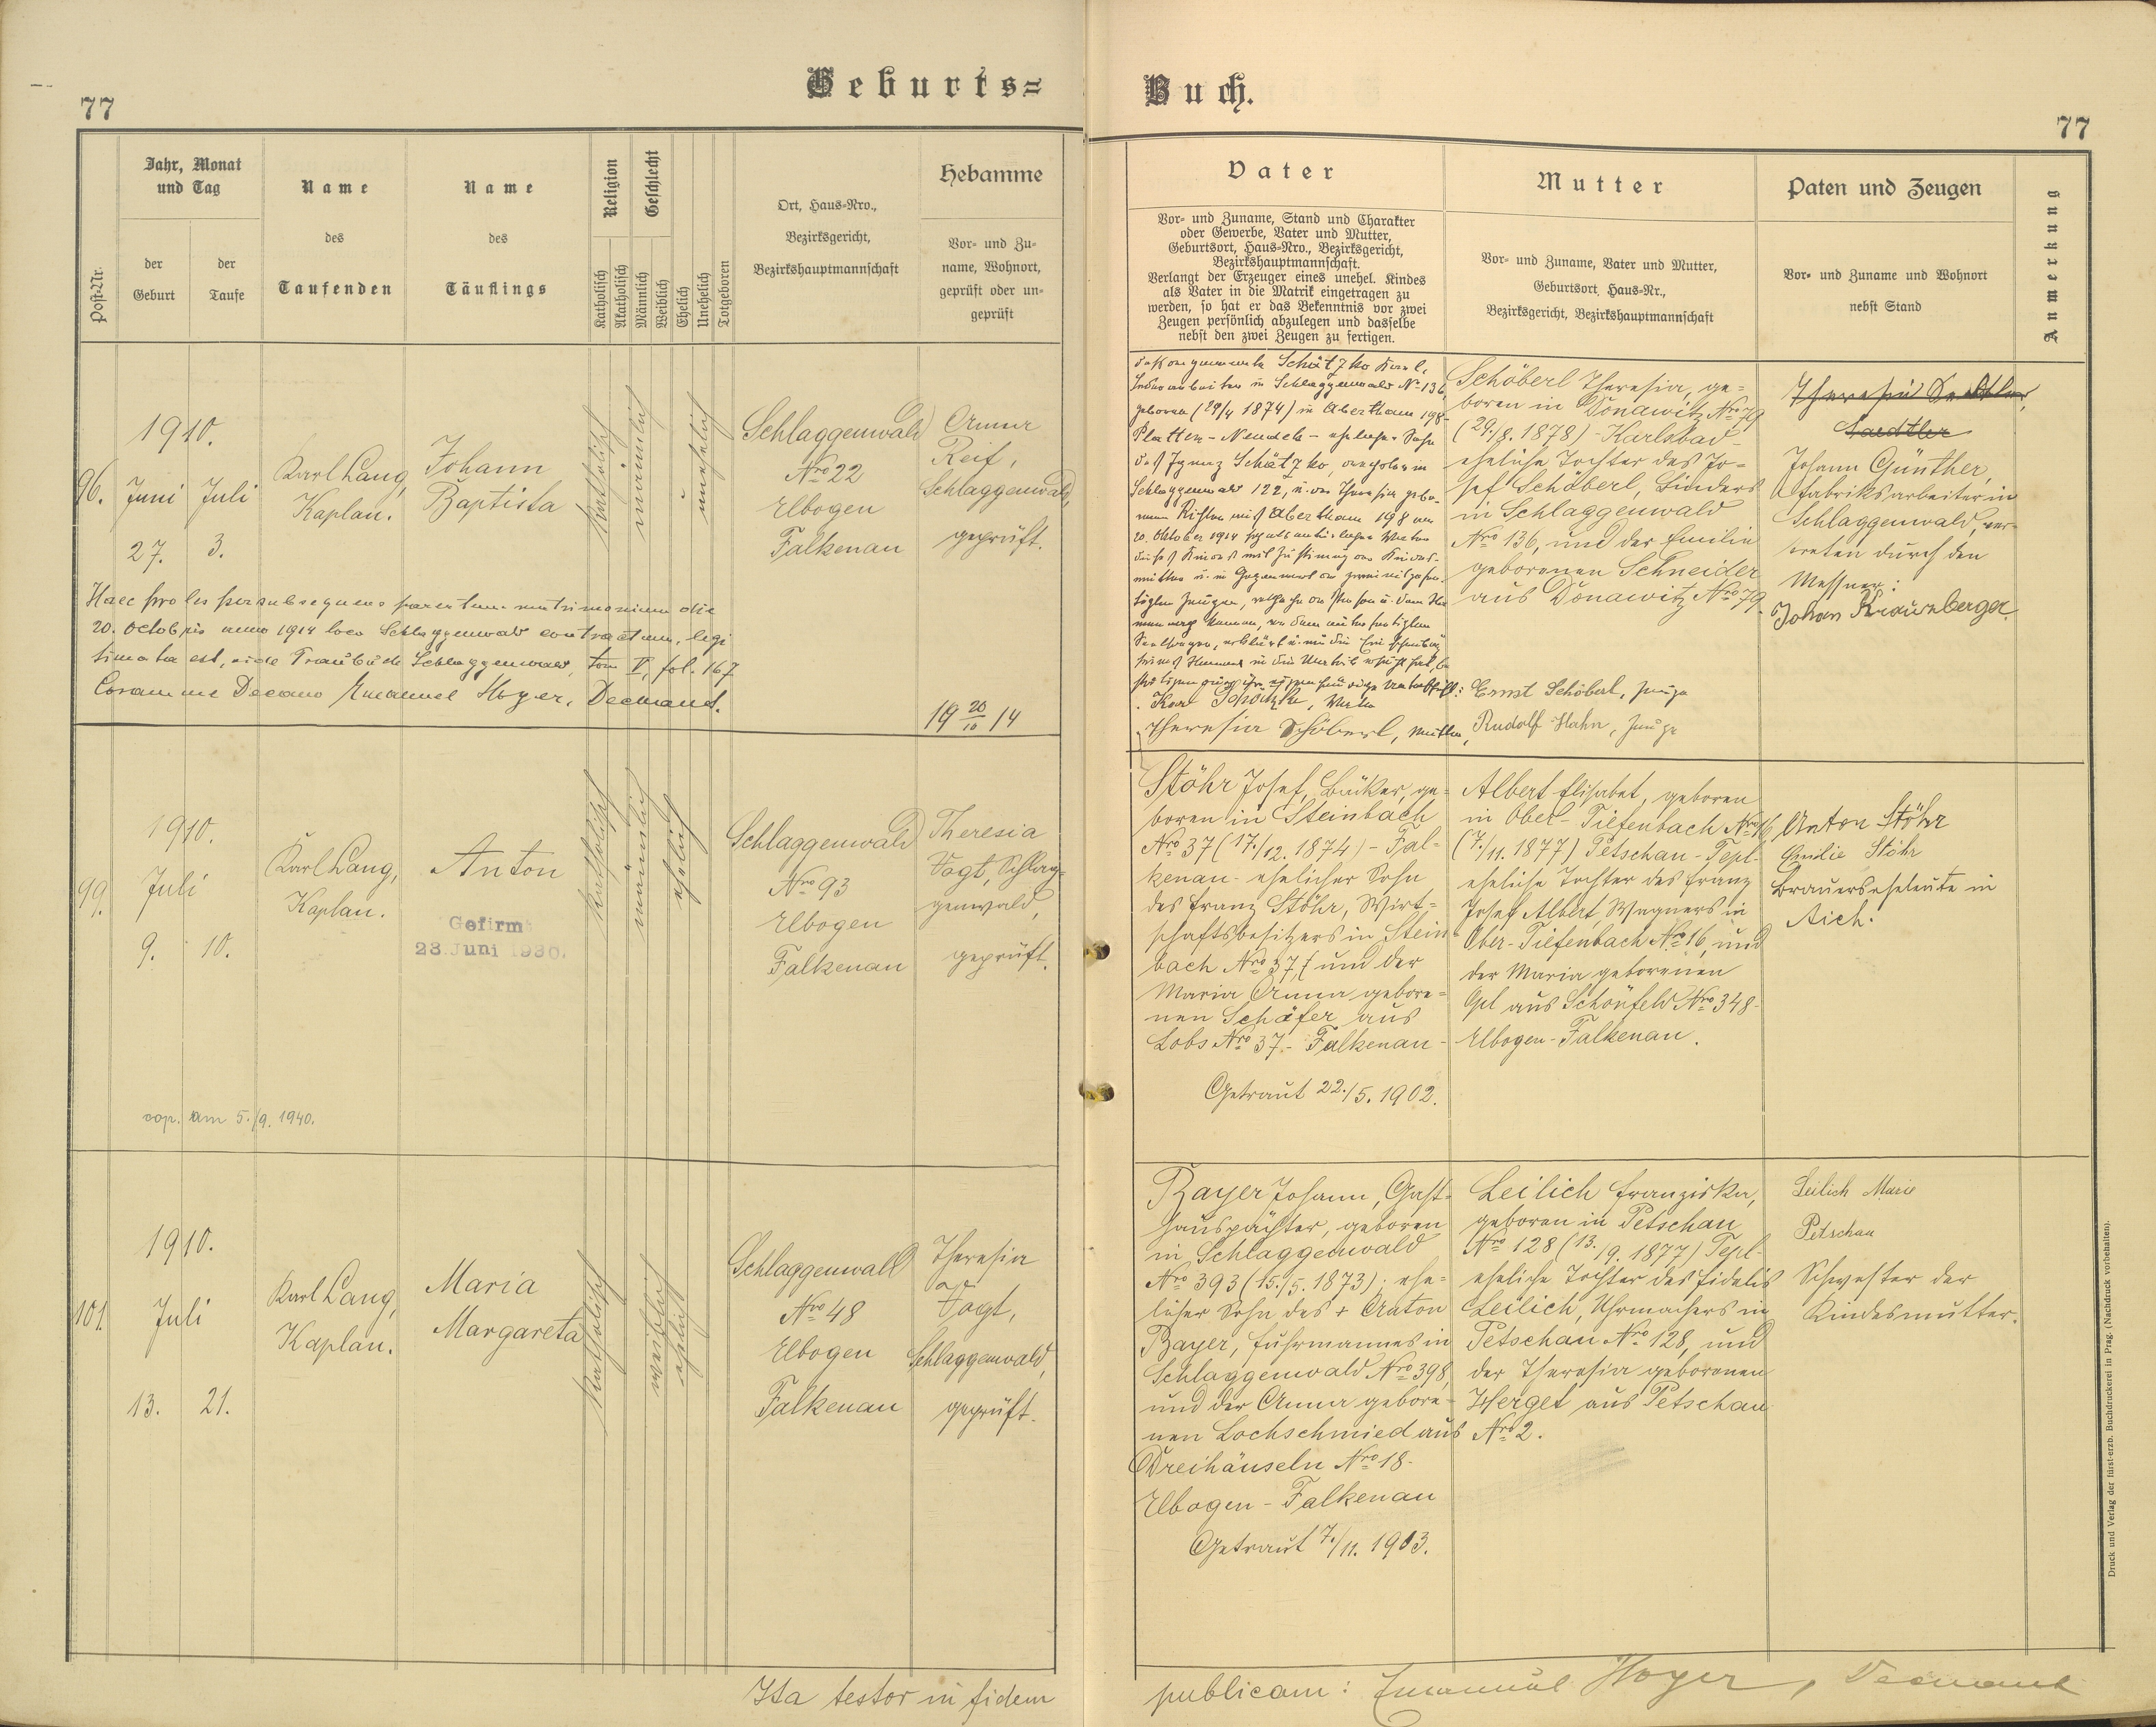 77
Geburts=
Post-Nr.
Jahr, Monat
und Tag
der
Geburt
der
Taufe
Name
des
Taufenden
Name
des
Täuflings
Religion
Katholisch
Akatholisch
Geschlecht
Männlich
Weiblich
Ehelich
Unehelich
Totgeboren
Ort, Haus=Nro.,
Bezirksgericht,
Bezirkshauptmannschaft
Hebamme
Vor= und Zu=
name, Wohnort,
geprüft oder un=
geprüft
96.
1910.
Juni Juli
27. 3.
Karl Lang,
Kaplan.
Johann
Baptista
katholisch
männlich
unehelich
Schlaggenwald
Nro 22
Elbogen
Falkenau
Anna
Reif,
Schlaggenwald,
geprüft.
Haec proles per subsequens parentum matrimonium die
20. Octobris anno 1914 loco Schlaggenwald contractum, legi
timata est, vide Traubuch Schlaggenwald, tom V, fol. 167
Coram me Decano Emanuel Hoyer, Dechant.
19 20/10 14
99.
1910.
Juli
9. 10.
Karl Lang,
Kaplan.
Anton
Gefirmt
23. Juni 1930.
katholisch
männlich
ehelich
Schlaggenwald
Nro 93
Elbogen
Falkenau
Theresia
Vogt, Schlag=
genwald,
geprüft.
cop. am 5./9. 1940.
101.
1910.
Juli
13. 21.
Karl Lang,
Kaplan.
Maria
Margareta
katholisch
weiblich
ehelich
Schlaggenwald
Nro 48
Elbogen
Falkenau
Theresia
Vogt,
Schlaggenwald,
geprüft.
Ita testor in fidem
Buch.
77
Vater
Vor= und Zuname, Stand und Charakter
oder Gewerbe, Vater und Mutter,
Geburtsort, Haus=Nro., Bezirksgericht,
Bezirkshauptmannschaft.
Verlangt der Erzeuger eines unehel. Kindes
als Vater in die Matrik eingetragen zu
werden, so hat er das Bekenntnis vor zwei
Zeugen persönlich abzulegen und dasselbe
nebst den zwei Zeugen zu fertigen.
Mutter
Vor= und Zuname, Vater und Mutter,
Geburtsort, Haus=Nr.,
Bezirksgericht, Bezirkshauptmannschaft
Paten und Zeugen
Vor= und Zuname und Wohnort
nebst Stand
Anmerkung
Schätzko Karl,
in Schlaggenwald No 136,
geboren (29/4 1874) in Abertham 198
Platten - Neudek - ehelicher Sohn
des Ignaz Schätzko,
Schlaggenwald 122, u. der Theresia gebo-
aus Abertham 198
20. Oktober 1914
Karl Schätzko, Vater
Theresia Schöberl, Mutter,
Schöberl Theresia, ge=
boren in Donawitz Nro 79
(29./8. 1878) - Karlsbad -
eheliche Tochter des Jo=
sef Schöberl, Binders
in Schlaggenwald
Nro 136, und der Emilie
geborenen Schneider
aus Donawitz Nro 79.
Ernst Schöberl, Zeuge
Rudolf Hahn, Zeuge
Johann Günther,
Fabriksarbeiter in
Schlaggenwald, ver=
treten durch den
Messner:
Stöhr Josef, Bäcker, ge=
boren in Steinbach
Nro 37 (17./12. 1874) - Fal=
kenau - ehelicher Sohn
des Franz Stöhr, Wirt=
schaftsbesitzers in Stein
bach Nro 37, und der
Maria Anna gebore=
nen Schäfer aus
Lobs Nro 37 - Falkenau -
Getraut 22./5. 1902.
Albert Elisabet, geboren
in Ober-Tiefenbach Nro 16
(7./11. 1877) Petschau - Tepl-
eheliche Tochter des Franz
Josef Albert, Wagners in
Ober-Tiefenbach Nro 16, und
der Maria geborenen
aus Schönfeld Nro 348-
Elbogen - Falkenau.
Anton Stöhr
Emilie Stöhr
Brauerseheleute in
Aich.
Bayer Johann, Gast=
hauspächter, geboren
in Schlaggenwald
Nro 393 (15./5. 1873); ehe=
licher Sohn des + Anton
Bayer, Fuhrmannes in
Schlaggenwald Nro 398,
und der Anna gebore=
nen Lochschmied aus
Dreihäuseln Nro 18-
Elbogen - Falkenau
Getraut 7./11. 1903.
Leilich Franziska,
geboren in Petschau
Nro 128 (13./9. 1877) Tepl-
eheliche Tochter des Fidelis
Leilich, Uhrmachers in
Petschau Nro 128, und
der Theresia geborenen
Herget aus Petschau
Nro 2.
Leilich Marie
Petschau
Schwester der
Kindesmutter.
publicam: Emanuel Hoyer, Dechant
Druck und Verlag der fürst-erzb. Buchdruckerei in Prag. (Nachdruck vorbehalten).